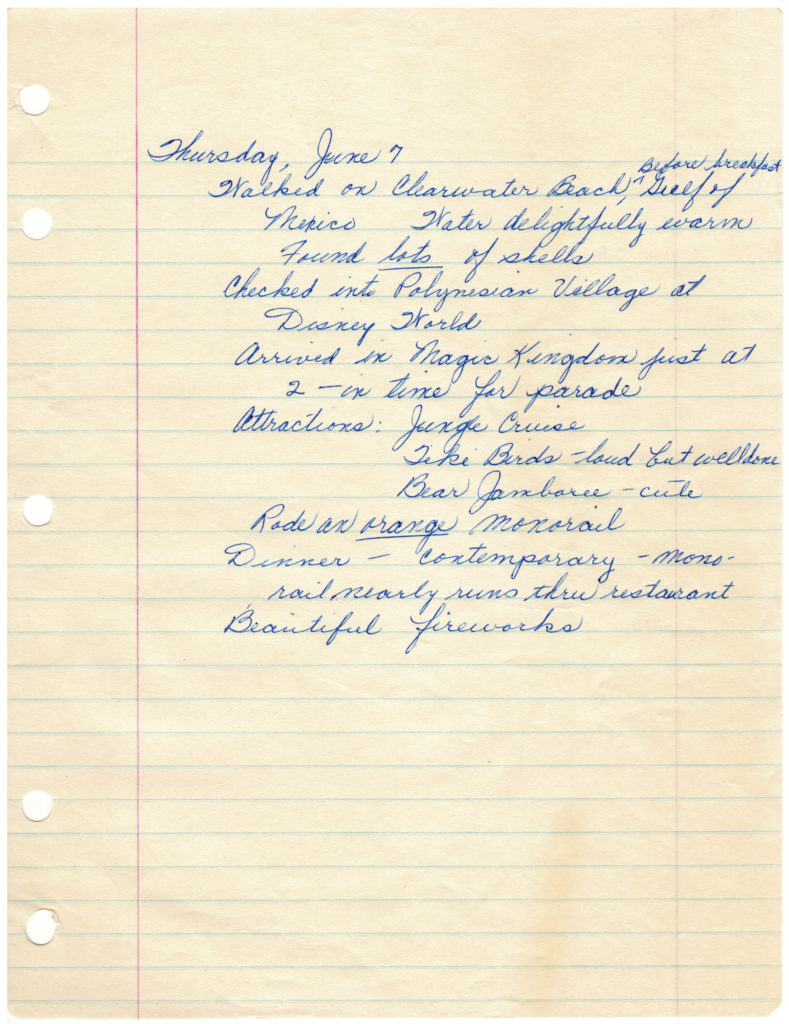 Thursday, June 7
Before breakfast
Walked on Clearwater Beach, Gulf of
Mexico Water delightfully warm
Found lots of shells
Checked into Polynesian Village at
Disney World
Arrived in Magic Kingdom just at
2 – in time for parade
Attractions: Jungle Cruise
Tiki Birds – loud but well done
Bear Jamboree – cute
Rode an orange monorail
Dinner – Contemporary – mono-
rail nearly runs thru restaurant
Beautiful fireworks